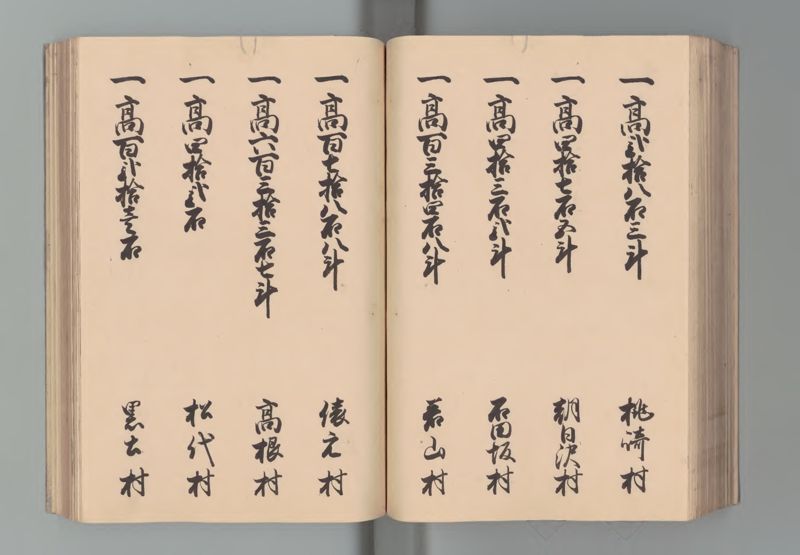 一高弐拾八石三斗 桃崎村
一高四拾七石五斗 朝日沢村
一高四拾三石弐斗 石田坂村
一高百三拾四石八斗 若山村
一高百七拾八石八斗 俵元村
一高六百三拾三石七斗 高根村
一高四拾弐石 松代村
一高百弐拾壱石 黒土村